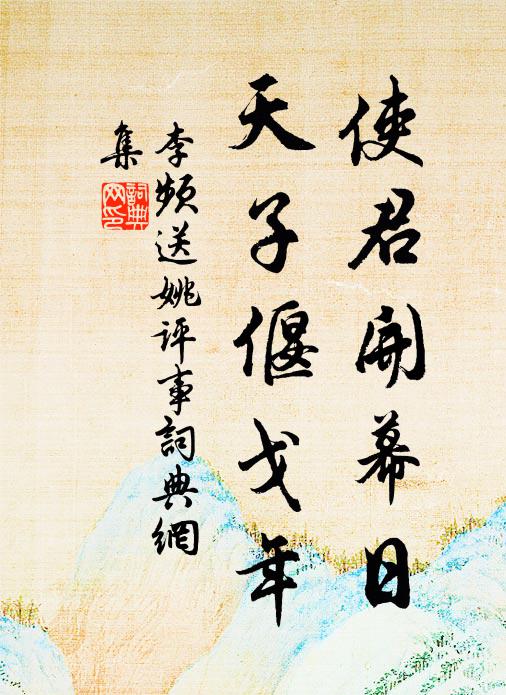 使君開幕日
天子偃戈年
李頻送姚評事詞典網
集
詞典
网印